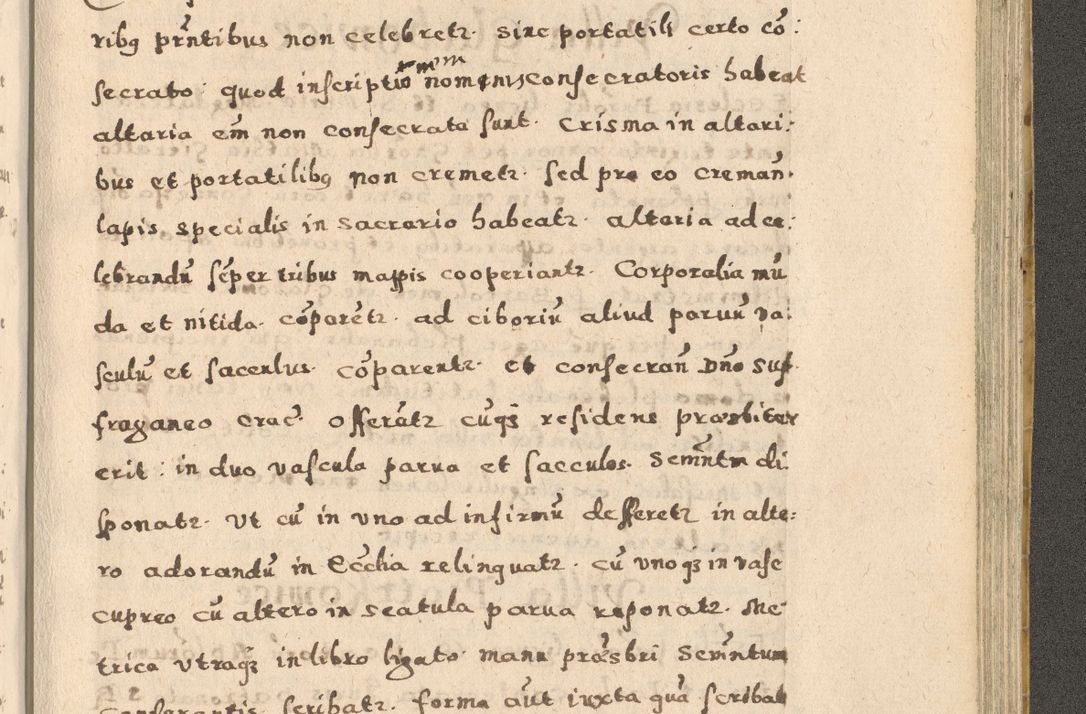 ribꝗ prñtibus non celebretꝛ. sine portatili certo cō:
secrato: quod inscriptiō nom consecratoris habeat
altaria em̄ non consecrata sunt. Crisma in altari:
bus et portatilibꝗ non cremetꝛ. sed pro eo creman̄.
lapis specialis in sacrario habeatꝛ. altaria ad ce:
lebrandū sēper tribus mappis cooperiantꝛ. Corporalia mū
da et nitida. cōparētꝛ. ad ciboriū aliud paruū va:
sculū et sacculus. cōparentꝛ. et consecran̄ Dn̄o suf
fraganeo crac̄. offerātꝛ cūqꝫ residens præsbiter
erit: in duo vascula parua et sacculos. Sem̄ntm di
sponatꝛ. vt cū in vno ad infirmū defferetꝛ in alte:
ro adorandū in Ecc̄lia relinquatꝛ. cū vnoqꝫ in vase
cupreo cū altero in scatula parua reponatꝛ. Me
trica vtraqꝫ in libro ligato manu præsbri Sem̄ntum
conferantis scribatꝛ. forma aūt iuxta quā scribat